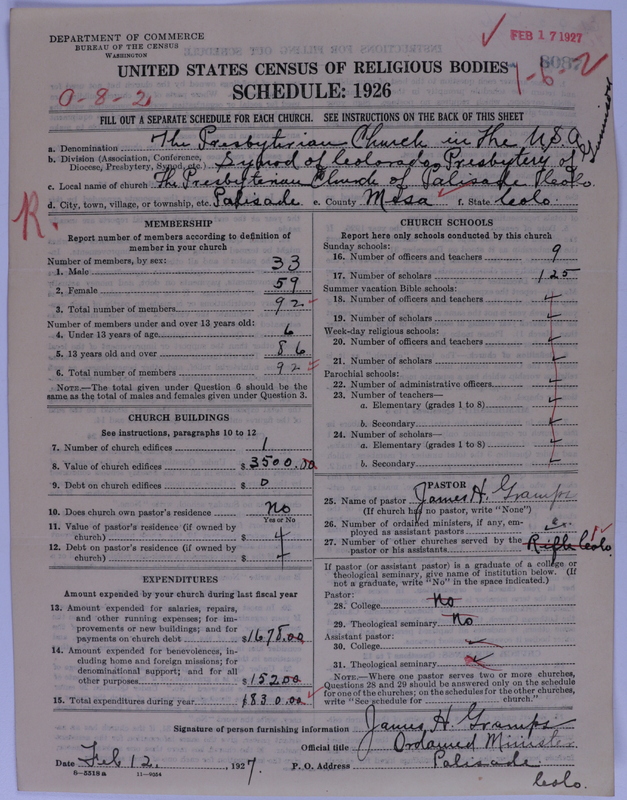 DEPARTMENT OF COMMERCE
BUREAU OF THE CENSUS
WASHINGTON
FEB 17 1927
UNITED STATES CENSUS OF RELIGIOUS BODIES
1-6-2
0-8-2
SCHEDULE: 1926
FILL OUT A SEPARATE SCHEDULE FOR EACH CHURCH. SEE INSTRUCTIONS ON THE BACK OF THIS SHEET
a. Denomination The Presbyterian Church in the U.S.A
b. Division (Association, Conference, Diocese, Presbytery, Synod, etc.) Synod of Colorado, Presbytery of Gunnison
c. Local name of church The Presbyterian Church of Palisade Colo.
d. City, town, village, or township, etc. Palisade e. County Mesa f. State Colo.
R.
MEMBERSHIP
Report number of members according to definition of member in your church
Number of members, by sex:
1. Male 33
2. Female 59
3. Total number of members 92
Number of members under and over 13 years old:
4. Under 13 years of age 6
5. 13 years old and over 86
6. Total number of members 92
NOTE.—The total given under Question 6 should be the same as the total of males and females given under Question 3.
CHURCH BUILDINGS
See instructions, paragraphs 10 to 12
7. Number of church edifices 1
8. Value of church edifices $ 3500.00
9. Debt on church edifices $ 0
10. Does church own pastor's residence No
Yes or No
11. Value of pastor's residence (if owned by church) $
12. Debt on pastor's residence (if owned by church) $
EXPENDITURES
Amount expended by your church during last fiscal year
13. Amount expended for salaries, repairs, and other running expenses; for improvements or new buildings; and for payments on church debt $1678.00
14. Amount expended for benevolences, including home and foreign missions; for denominational support; and for all other purposes $ 152.00
15. Total expenditures during year $1830.00
CHURCH SCHOOLS
Report here only schools conducted by this church
Sunday schools:
16. Number of officers and teachers 9
17. Number of scholars 125
Summer vacation Bible schools:
18. Number of officers and teachers
19. Number of scholars
Week-day religious schools:
20. Number of officers and teachers
21. Number of scholars
Parochial schools:
22. Number of administrative officers
23. Number of teachers—
a. Elementary (grades 1 to 8)
b. Secondary
24. Number of scholars—
a. Elementary (grades 1 to 8)
b. Secondary
PASTOR
25. Name of pastor James H. Gramps
(If church had no pastor, write "None")
26. Number of ordained ministers, if any, employed as assistant pastors
27. Number of other churches served by the pastor or his assistants Rifle Colo. 1
If pastor (or assistant pastor) is a graduate of a college or theological seminary, give name of institution below. (If not a graduate, write "No" in the space indicated.)
Pastor:
28. College No
29. Theological seminary No
Assistant pastor:
30. College
31. Theological seminary
NOTE.—Where one pastor serves two or more churches, Questions 28 and 29 should be answered only on the schedule for one of the churches; on the schedules for the other churches, write "See schedule for church."
Signature of person furnishing information James H. Gramps
Official title Ordained Minister
Date Feb 12, 1927. P. O. Address Palisade Colo.
8-5318a 11-9054